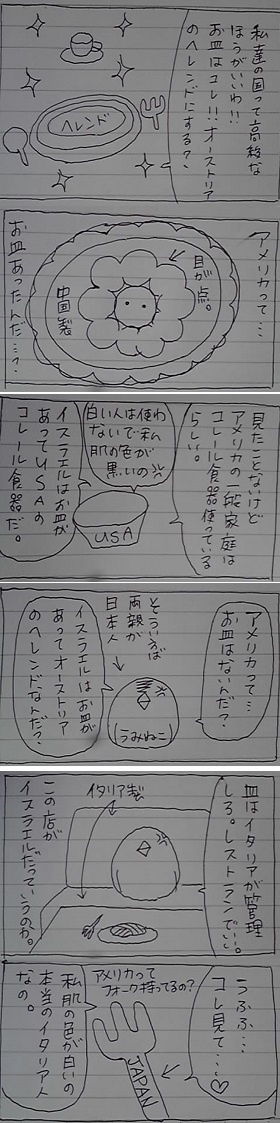 私達の国って高級な
ほうがいいわ!!
お皿はコレ!!オーストリア
のヘレンドにする?
ヘレンド
アメリカって…
目が点。
中国製
お皿あったんだ…?
見たことないけど
アメリカの一般家庭は
コレール食器使っている
らしい。
白い人は使わ
ないで私
肌の色が
黒いの
USA
イスラエルはお皿が
あってUSAの
コレール食器だ。
アメリカって…
お皿はないんだ?
そういえば
両親が
日本人
うみねこ
イスラエルはお皿が
あってオーストリア
のヘレンドなんだ?
皿はイタリアが管理
しろ。レストランでいい。
イタリア製
この店が
イスラエルだっていうのか。
うふふ…
コレ見て…♡
アメリカって
フォーク持ってるの?
JAPAN
私肌の色が白いの
本当のイタリア人
なの。